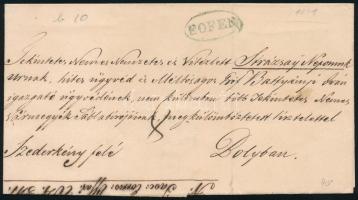 b 10
OFEN
Tekintetes Nemes Nemzetes és Vitézlett Nepomuk
urnak, hites ügyvéd és Méltóságos Gróf Batthyányi
igazgató ügyvédének, nem külömben több Tekintetes Nemes
Vármegyék Tábla birájának, megkülömböztetett tisztelettel
Szederkény felé Dolyban.